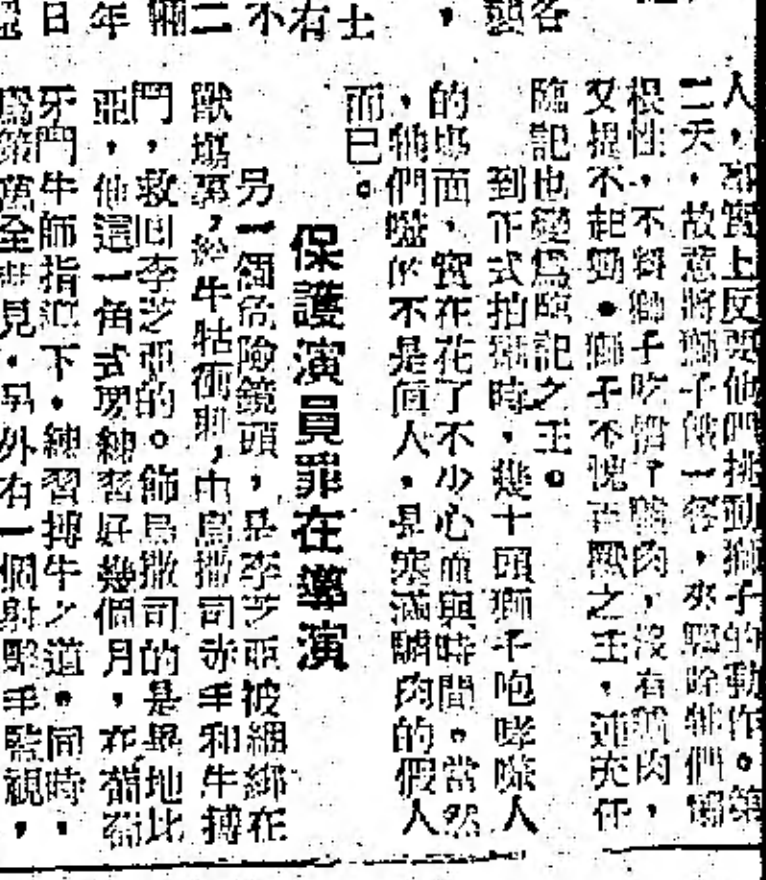 各
士
有
不
二
年
日
人，都實上反要他們挑動獅子的動作。第
二天，故意將獅子餓一餐，來驅除牠們
根性，不料獅子吃慣了 肉，沒有 肉，
又提不起勁。獅子不愧百獸之王，連充任
臨記也變為臨記之王。
到正式拍攝時，幾十頭獅子咆哮噬人
的場面，實在花了不少心血與時間。當然
，牠們噬的不是真人，是塞滿 肉的假人
而已。
保護演員罪在導演
另一個危險鏡頭，是李芝亞被綑綁在
獸場裏，給牛牯衝刺，由烏撒司赤手和牛搏
鬥，救回李芝亞的。飾烏撒司的是畢地比
亞，他這一角式要練習好幾個月，在葡萄
牙鬥牛師指導下，練習搏牛之道。同時，
為策萬全起見，另外有一個射擊手監視，